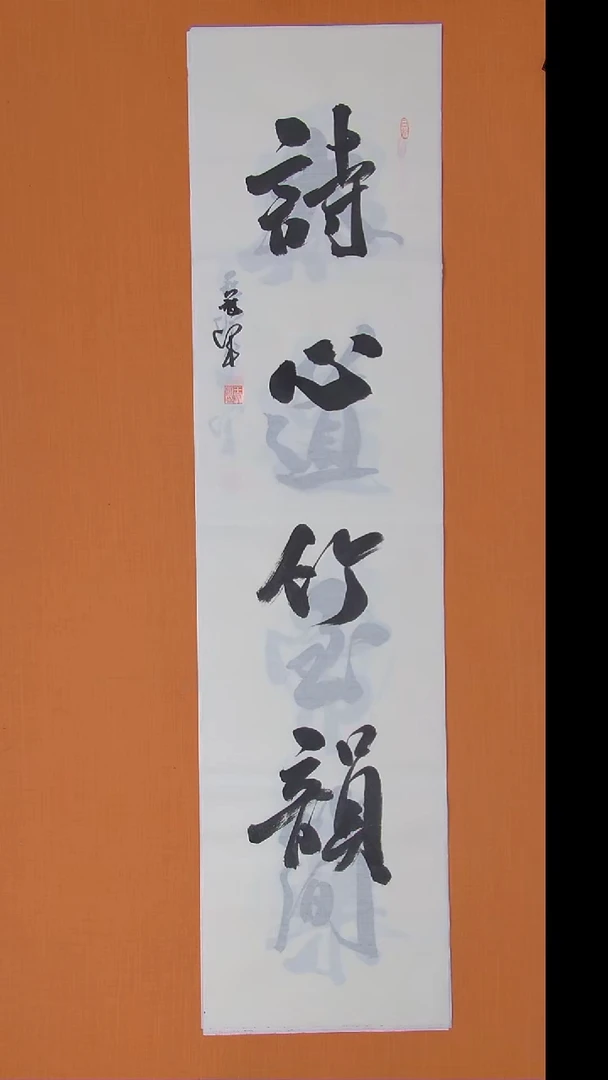 詩心竹韻